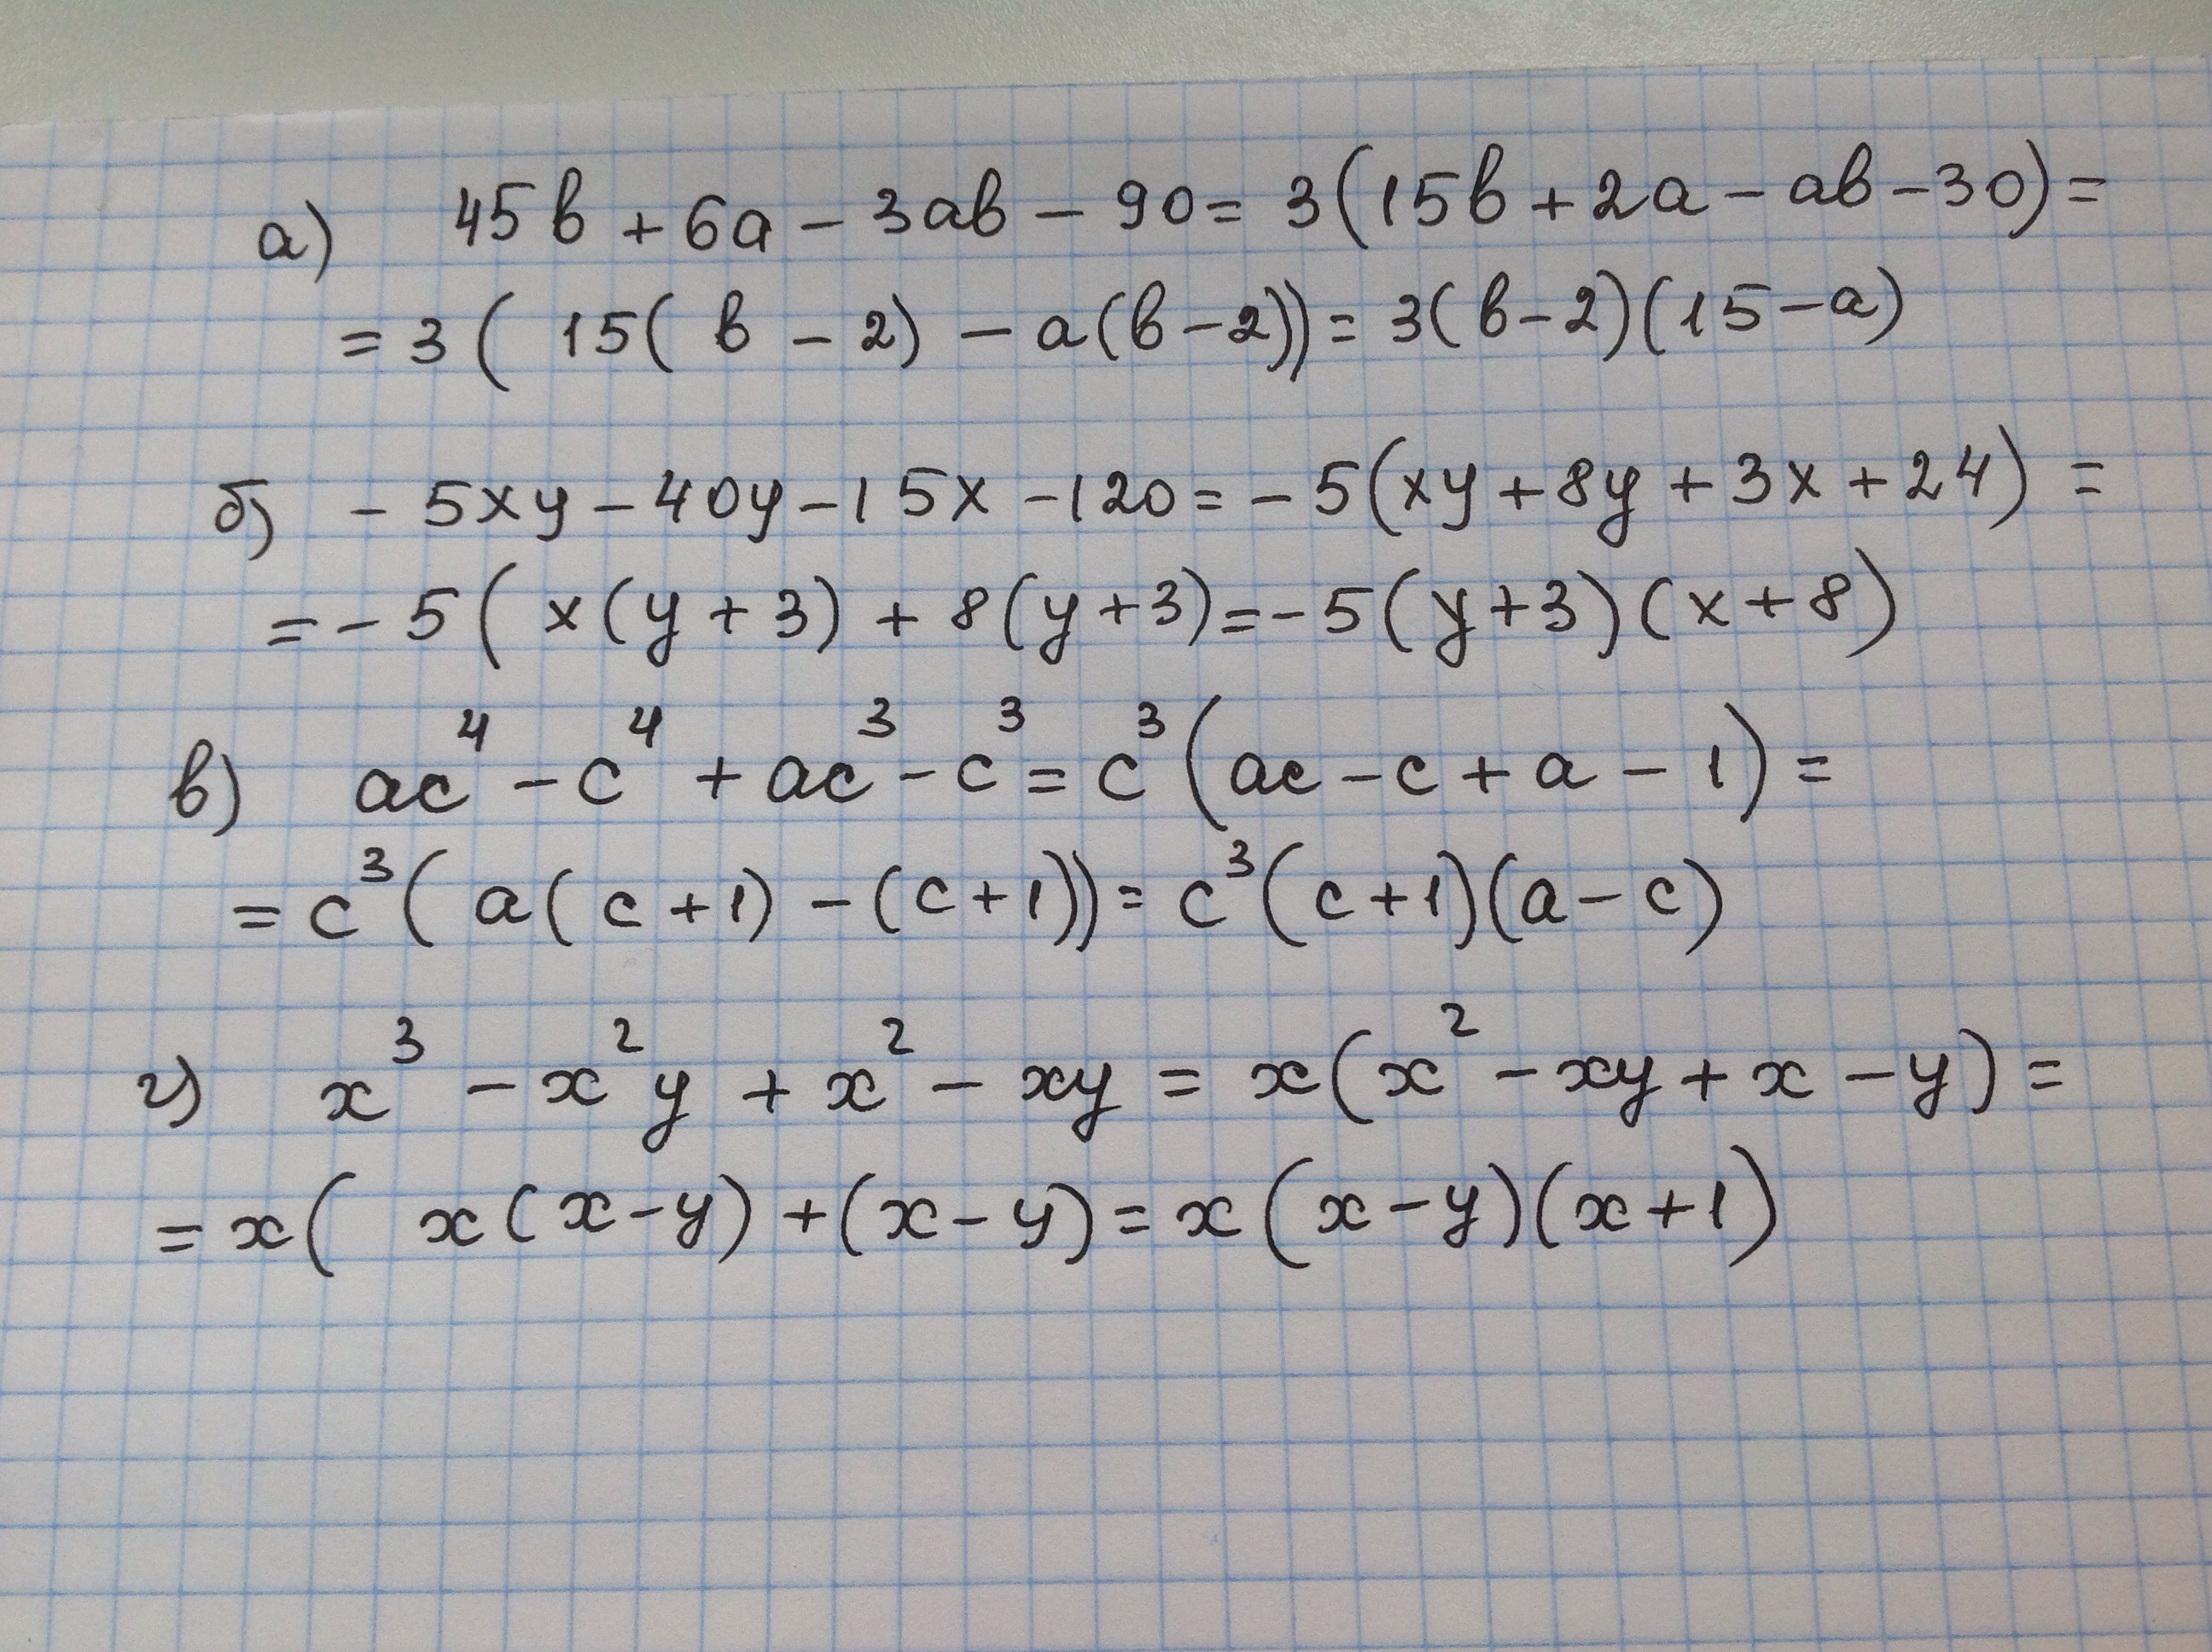 а) 45b + 6a - 3ab - 90 = 3(15b + 2a - ab - 30) =
= 3(15(b - 2) - a(b - 2)) = 3(b - 2)(15 - a)
б) - 5xy - 40y - 15x - 120 = - 5(xy + 8y + 3x + 24) =
= - 5(x(y + 3) + 8(y + 3) = - 5(y + 3)(x + 8)
в) ac⁴ - c⁴ + ac³ - c³ = c³(ac - c + a - 1) =
= c³(a(c + 1) - (c + 1)) = c³(c + 1)(a - c)
г) x³ - x²y + x² - xy = x(x² - xy + x - y) =
= x(x(x - y) + (x - y) = x(x - y)(x + 1)